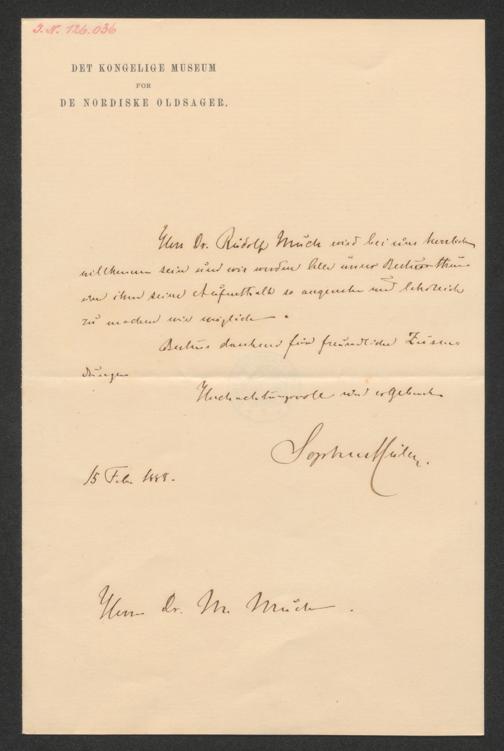 J.N. 126.036
DET KONGELIGE MUSEUM
FOR
DE NORDISKE OLDSAGER.
Herr Dr. Rudolf Much wird bei uns herzlich
willkommen sein und wir werden alles unser thun
um ihm seine Aufenthalt so angenehm und lehrreich
zu machen wie möglich.
Bestens dankend für freundliche Zusen
dungen
Hochachtungsvoll und ergebenst
Sophus Müller.
15 Feb. 1888.
Herrn Dr. M. Much.